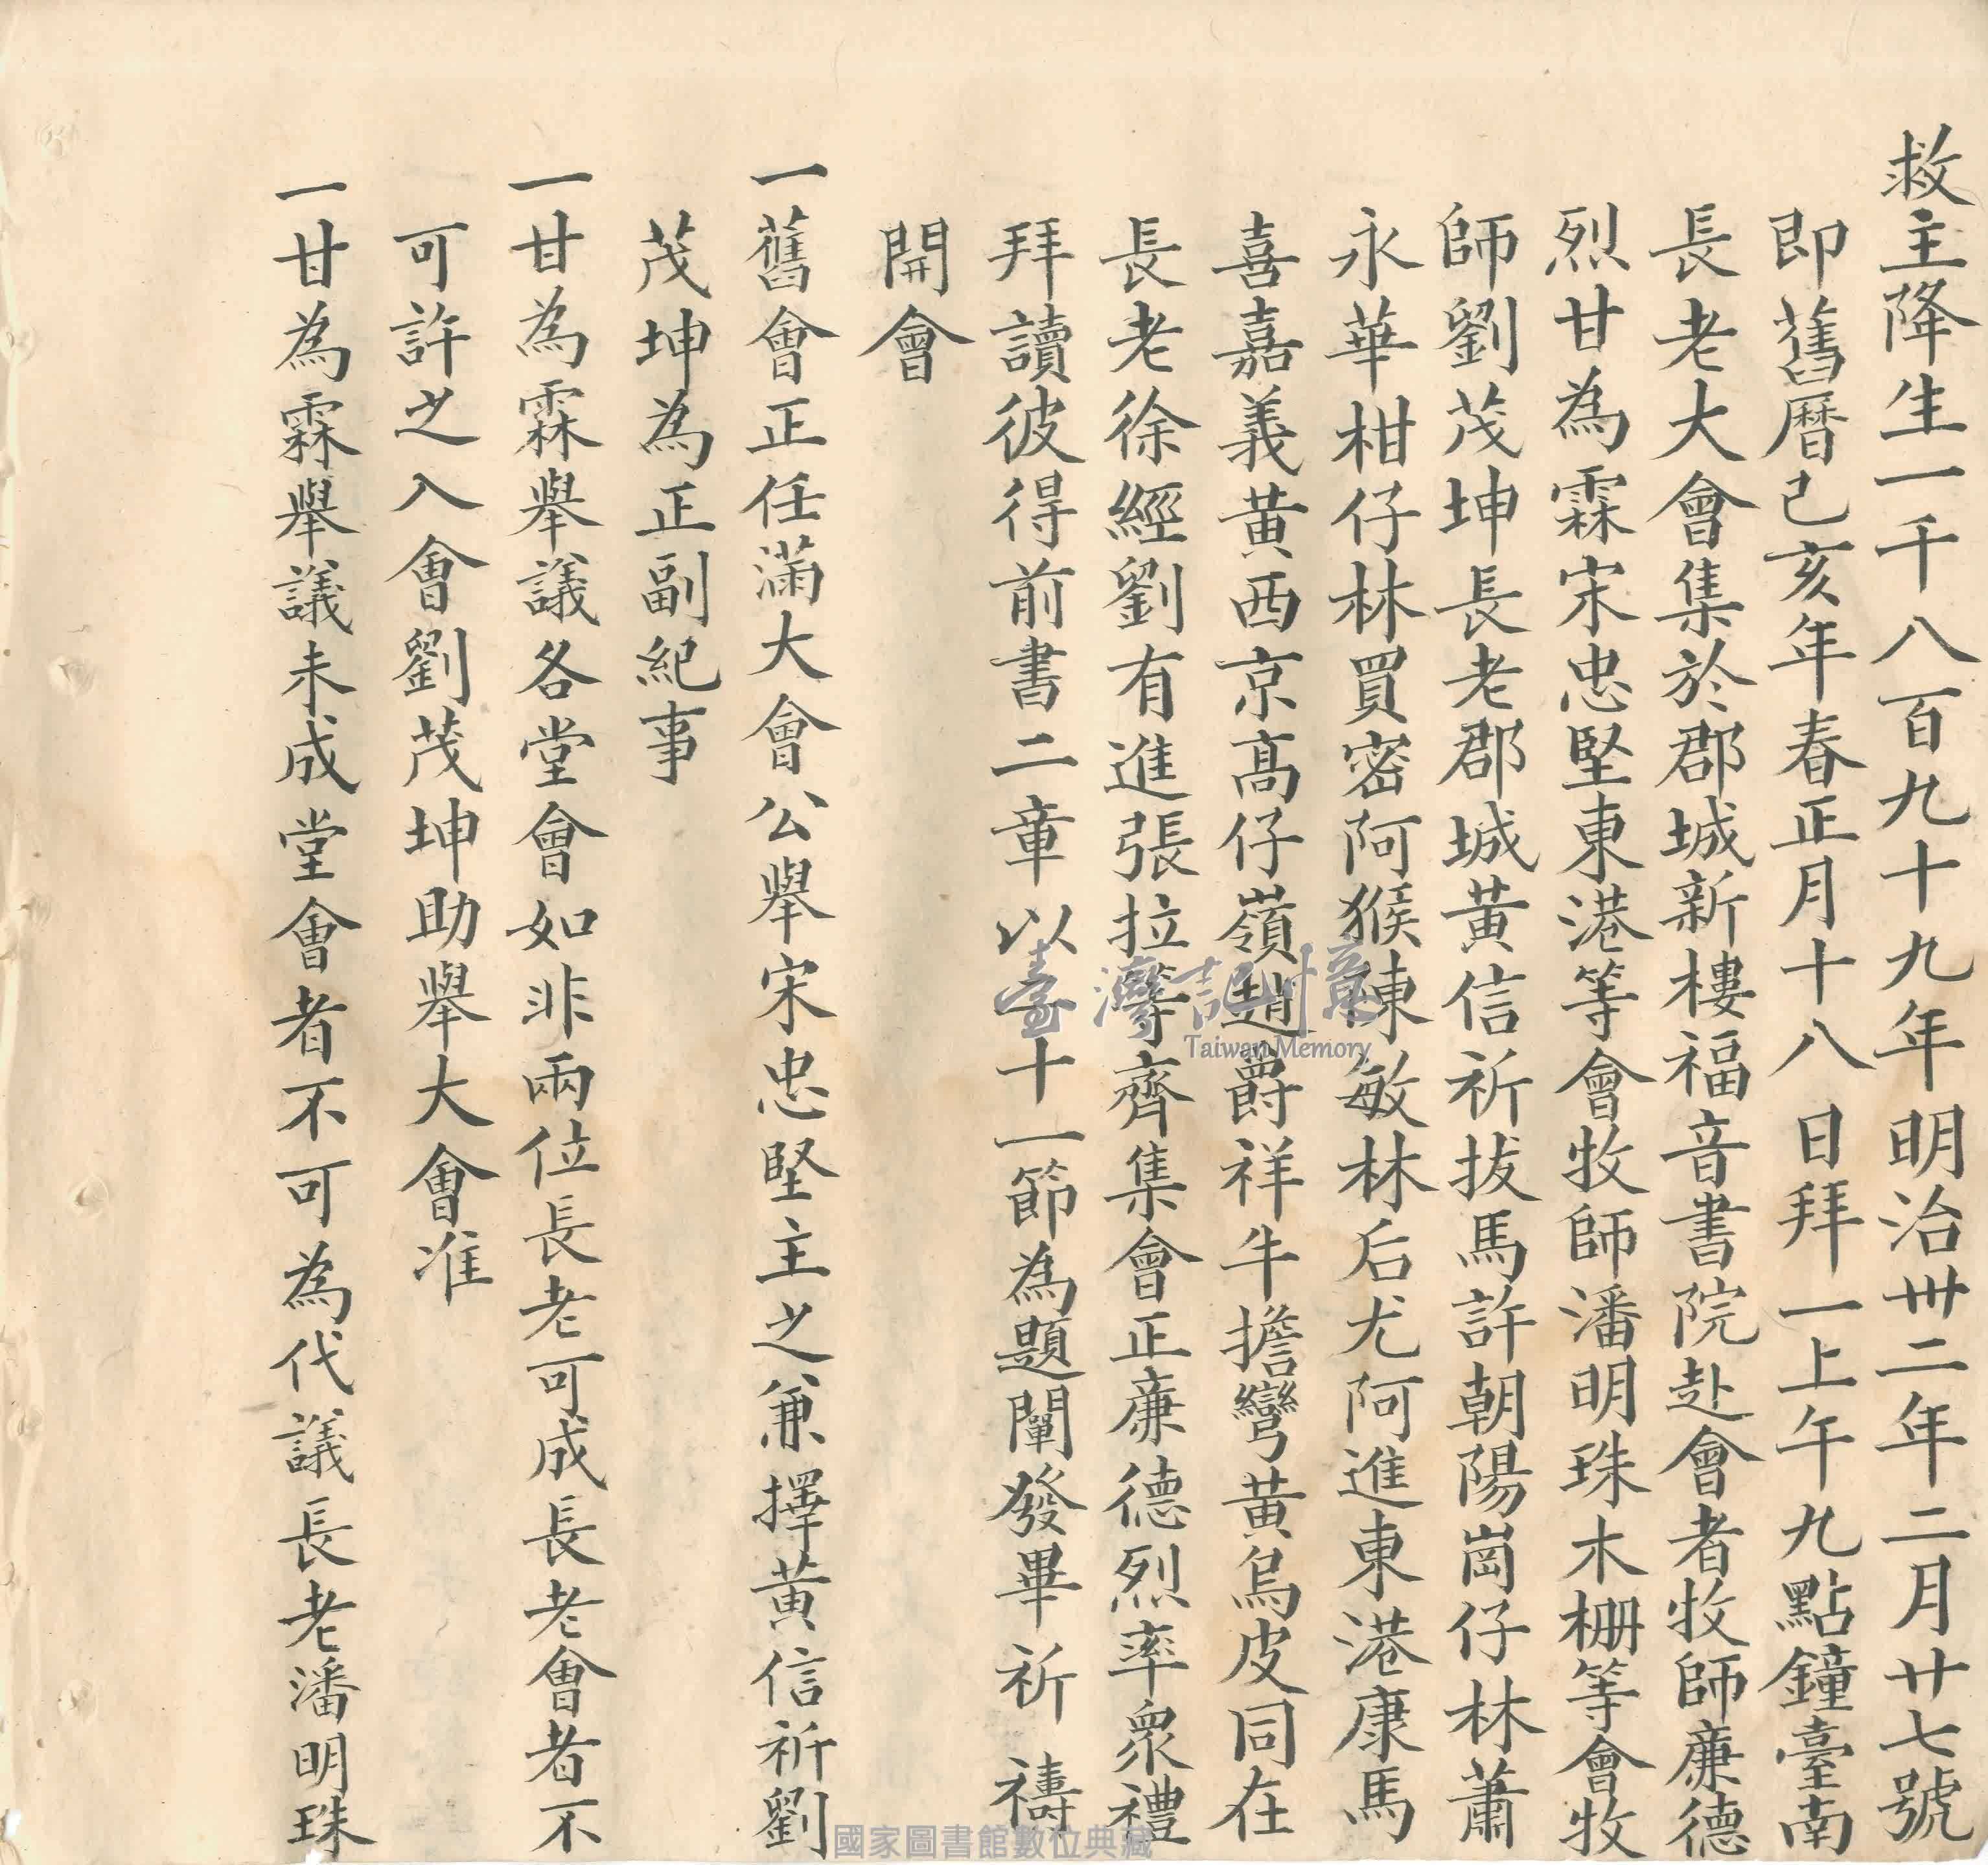 救主降生一千八百九十九年明治卅二年二月廿七號
即舊曆己亥年春正月十八日拜一上午九點鐘臺南
長老大會集於郡城新樓福音書院赴會者牧師廉德
烈甘為霖宋忠堅東港等會牧師潘明珠木柵等會牧
師劉茂坤長老郡城黃信祈拔馬許朝陽崗仔林蕭
永華柑仔林買密阿猴陳敏林后尤阿進東港康馬
喜嘉義黃西京高仔嶺趙爵祥牛擔彎黃烏皮同在
長老徐經劉有進張拉等齊集會正廉德烈率眾禮
拜讀彼得前書二章以十一節為題闡發畢祈禱
開會
一舊會正任滿大會公舉宋忠堅主之兼擇黃信祈劉
茂坤為正副紀事
一甘為霖舉議各堂會如非兩位長老可成長老會者不
可許之入會劉茂坤助舉大會准
一甘為霖舉議未成堂會者不可為代議長老潘明珠
臺灣記憶
Taiwan Memory
國家圖書館數位典藏